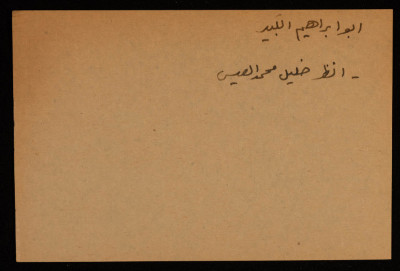 ابو ابراهيم الكبير
- انظر خليل محمد العيس